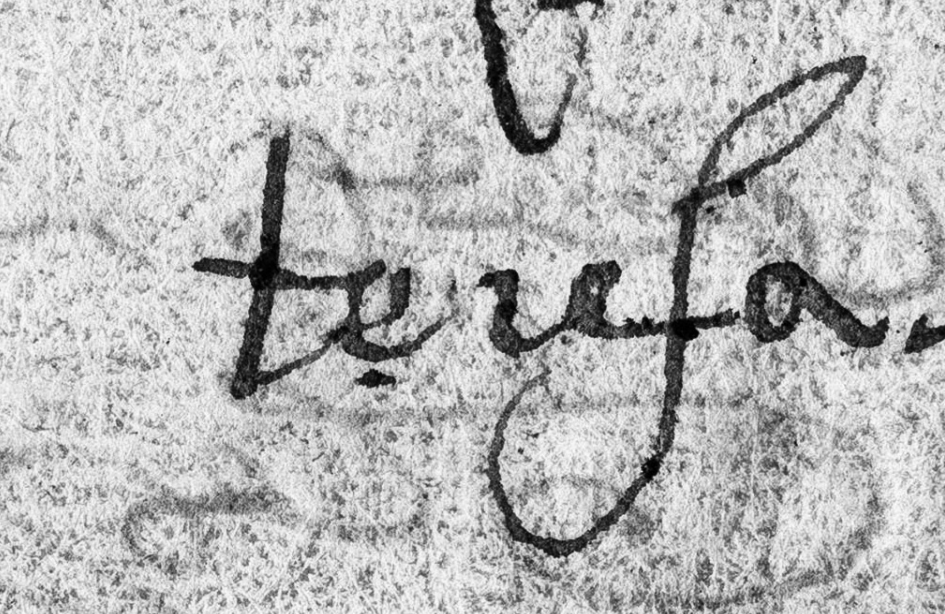 tereſa,